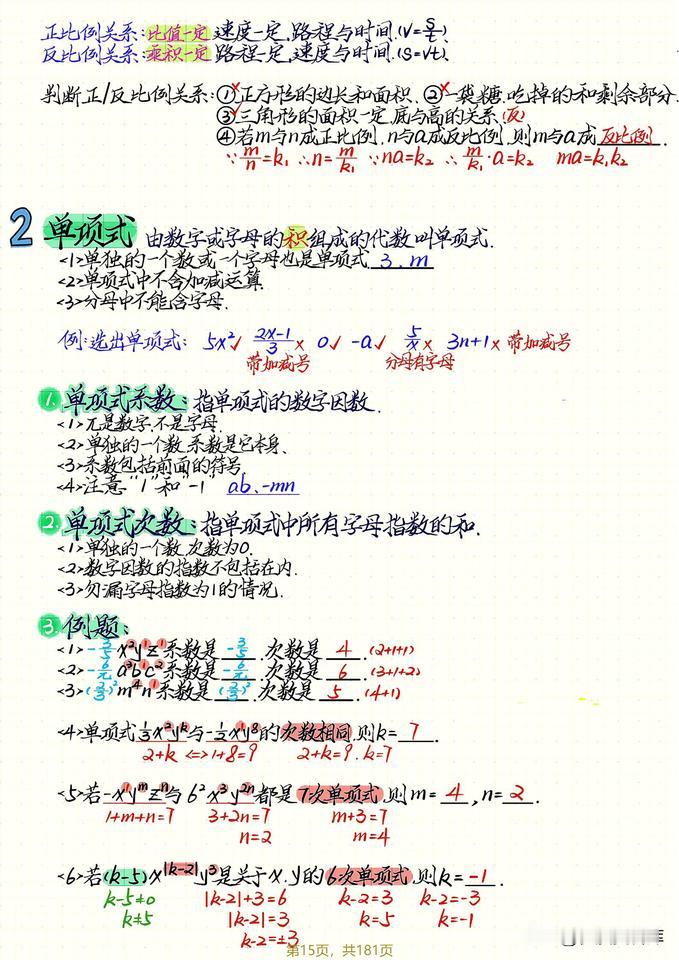 正比例关系:比值一定 速度一定,路程与时间.(V=S/t).
反比例关系:乘积一定 路程一定,速度与时间.(S=Vt).
判断正/反比例关系:①×正方形的边长和面积. ②×一袋糖,吃掉的和剩余部分.
③✓三角形的面积一定,底与高的关系.(反)
④若m与n成正比例,n与a成反比例,则m与a成 反比例.
∵m/n=k₁ ∴n=m/k₁ ∵na=k₂ ∴m/k₁·a=k₂ ma=k₁k₂
2 单项式 由数字或字母的积组成的代数叫单项式.
<1>单独的一个数或一个字母也是单项式 3.m
<2>单项式中不含加减运算.
<3>分母中不能含字母.
例:选出单项式: 5x²✓ 2x-1/3× 0✓ -a✓ 5/x× 3n+1× 带加减号
带加减号 分母有字母
1.单项式系数:指单项式的数字因数.
<1>兀是数字,不是字母.
<2>单独的一个数,系数是它本身.
<3>系数包括前面的符号
<4>注意“1”和“-1” ab.-mn
2.单项式次数:指单项式中所有字母指数的和.
<1>单独的一个数,次数为0.
<2>数字因数的指数不包括在内.
<3>勿漏字母指数为1的情况.
3.例题:
<1>-3/5x²y¹z¹系数是 -3/5 .次数是 4 .(2+1+1)
<2>-6/π a³b¹c²系数是 -6/π .次数是 6 .(3+1+2)
<3>(2/3)²m⁴n¹系数是 (2/3)² .次数是 5 .(4+1)
<4>单项式1/3x²yᵏ与-1/2x¹y⁸的次数相同,则k= 7 .
2+k <=> 1+8=9 2+k=9.k=7
<5>若-x¹yᵐzⁿ与6²x³y²ⁿ都是7次单项式,则m= 4 ,n= 2 .
1+m+n=7 3+2n=7 m+3=7
n=2 m=4
<6>若(k-5)x^|k-2|y³是关于x.y的6次单项式,则k= -1 .
k-5≠0 |k-2|+3=6 k-2=3 k-2=-3
k≠5 |k-2|=3 k=5 k=-1
k-2=±3
第15页，共181页